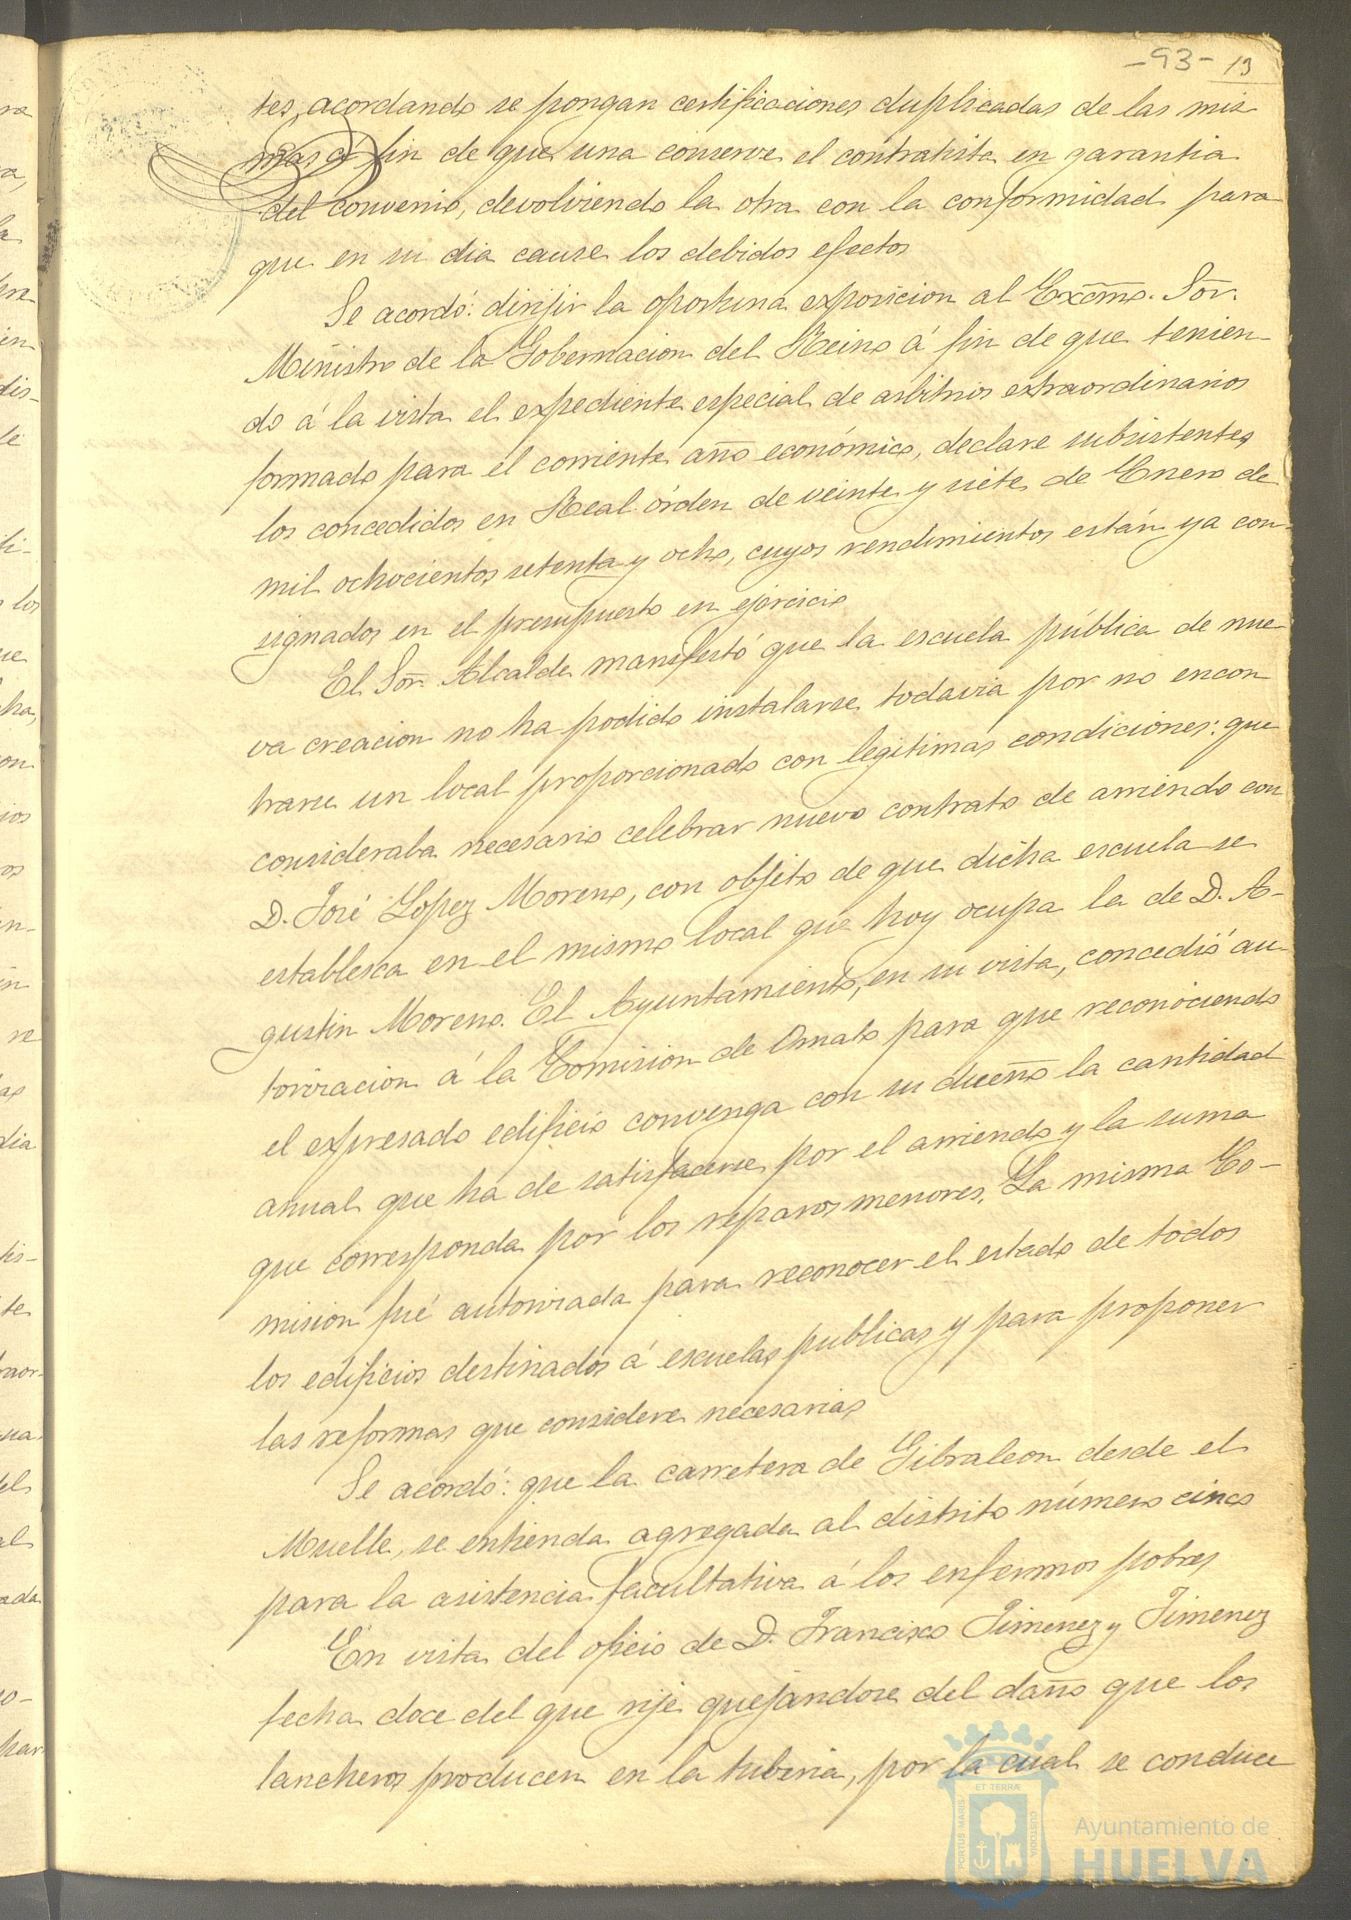 -93- 13
tes, acordando se pongan certificaciones duplicadas de las mis
mas á fin de que una conserve el contratista en garantia
del convenio, devolviendo la otra con la conformidad para
que en su dia cause los debidos efectos
Se acordó: dirijir la oportuna exposicion al Excmo. Sor.
Ministro de la Gobernacion del Reino á fin de que tenien-
do á la vista el expediente especial de arbitrios extraordinarios
formado para el corriente año económico, declare subsistentes
los concedidos en Real órden de veinte y siete de Enero de
mil ochocientos setenta y ocho, cuyos rendimientos están ya con-
signados en el presupuesto en ejercicio
El Sor. Alcalde manifestó que la escuela pública de nue-
va creacion no ha podido instalarse todavia por no encon
trarse un local proporcionado con legitimas condiciones: que
consideraba necesario celebrar nuevo contrato de arriendo con
D. José Lopez Moreno, con objeto de que dicha escuela se
establesca en el mismo local que hoy ocupa la de D. A-
gustin Moreno. El Ayuntamiento, en su vista, concedió au-
torizacion á la Comision de Ornato para que reconociendo
el expresado edificio convenga con su dueño la cantidad
anual que ha de satisfacerse por el arriendo y la suma
que corresponda por los reparos menores. La misma Co-
mision fué autorizada para reconocer el estado de todos
los edificios destinados á escuelas publicas y para proponer
las reformas que considere necesarias
Se acordó: que la carretera de Gibraleon desde el
Muelle, se entienda agregada al distrito número cinco
para la asistencia facultativa á los enfermos pobres
En vista del oficio de D. Francisco Jimenez y Jimenez
fecha doce del que rije quejándose del daño que los
lancheros producen en la tuberia, por la cual se conduce
PORTUS MARIS ET TERRÆ CUSTODIA
Ayuntamiento de
HUELVA